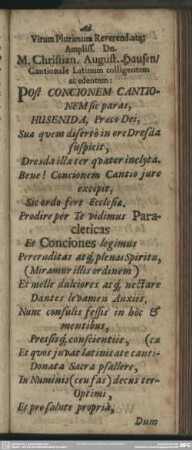 Ad
Virum Plurimum Reverend. atq;
Ampliss. Dn.
M. Christian. August. Hausen/
Cantionale Latinum colligentem
ac edentem:
Post CONCIONEM CANTIO-
NEM sic paras,
HUSENIDA, Præco Dei,
Sua quem diserto in ore Dresda
suspicit,
Dresda illa ter qvater inclyta.
Bene! Concionem Cantio jure
excipit,
Sic ordo fert Ecclesiæ.
Prodire per Te vidimus Para-
cleticas
Et Conciones legimus
Pereruditas atq; plenas Spiritu,
(Miramur illis ordinem)
Et melle dulciores atq; nectare
Dantes levamen Anxiis.
Nunc consulis fessis in hôc &
mentibus,
Pressisq; conscientiæ, (ca
Et qvos juvat latinitate canti-
Donata Sacra psallere,
In Numinis (ceu fas) decus ter-
Optimi,
Et pro salute propriâ,
Dum